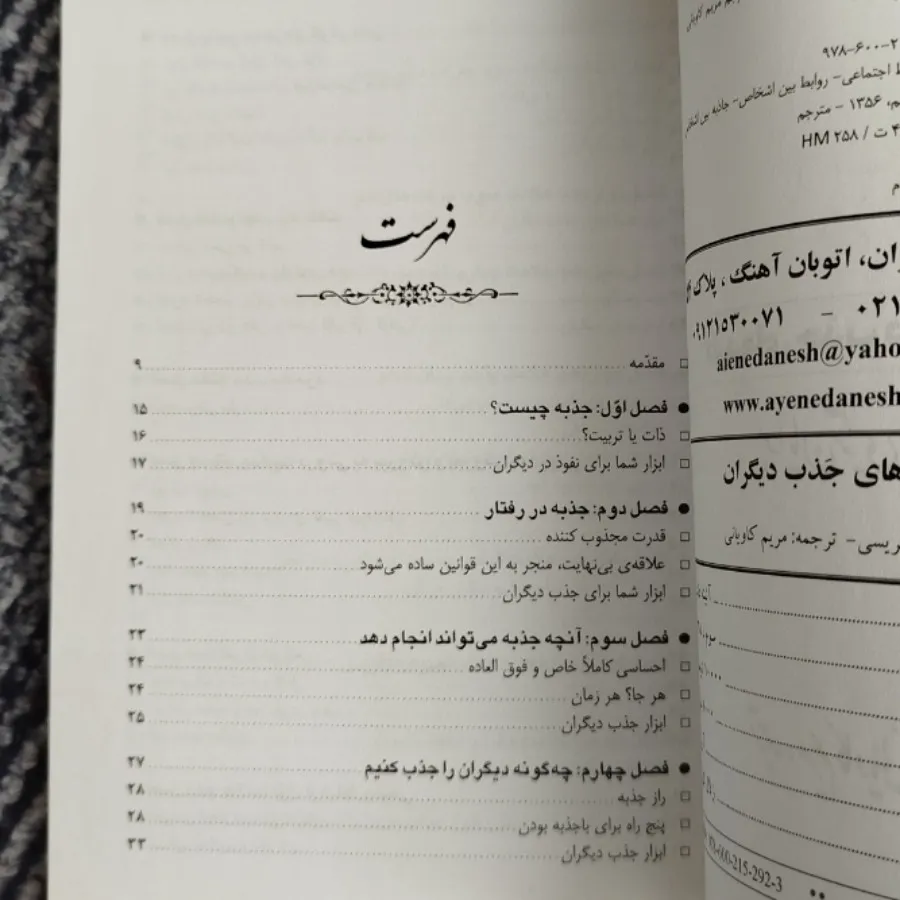 مریم کاویانی
۹۷۸-۶۰۰-۲
اجتماعی- روابط بین اشخاص- جاذبه بین اشخاص
۱۳۵۶ - مترجم
HM ۲۵۸ / ت ۴
اتوبان آهنگ، پلاک
۰۲۱ - ۰۹۱۲۱۵۳۰۰۷۱
aienedanesh@yaho
www.ayenedanesh
های جَذب دیگران
ریسی- ترجمه: مریم کاویانی
00-600-215-292-3
فهرست
□ مقدّمه ۹
● فصل اوّل: جذبه چیست؟ ۱۵
□ ذات یا تربیت؟ ۱۶
□ ابزار شما برای نفوذ در دیگران ۱۷
● فصل دوم: جذبه در رفتار ۱۹
□ قدرت مجذوب کننده ۲۰
□ علاقه‌ی بی‌نهایت، منجر به این قوانین ساده می‌شود ۲۰
□ ابزار شما برای جذب دیگران ۲۱
● فصل سوم: آنچه جذبه می‌تواند انجام دهد ۲۳
□ احساسی کاملاً خاص و فوق العاده ۲۴
□ هر جا؟ هر زمان ۲۴
□ ابزار جذب دیگران ۲۵
● فصل چهارم: چه‌گونه دیگران را جذب کنیم ۲۷
□ راز جذبه ۲۸
□ پنج راه برای باجذبه بودن ۲۸
□ ابزار جذب دیگران ۳۳